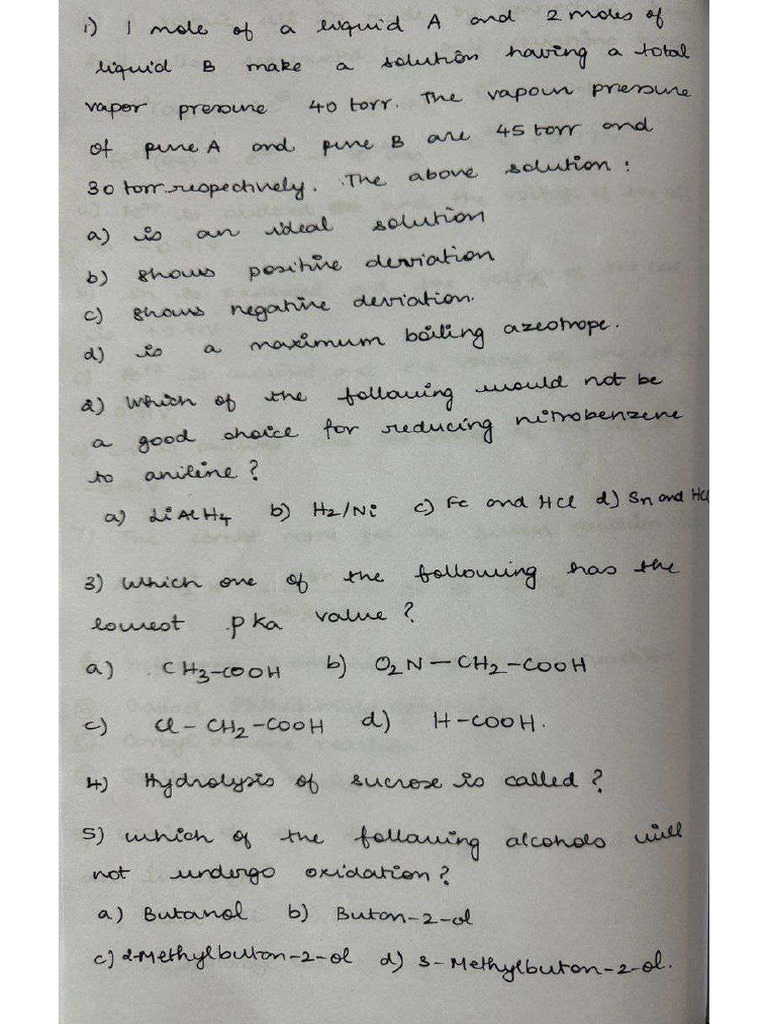 1) 1 mole of a liquid A and 2 moles of
liquid B make a solution having a total
vapor pressure 40 torr. The vapour pressure
of pure A and pure B are 45 torr and
30 torr respectively. The above solution:
a) is an ideal solution
b) shows positive deviation
c) shows negative deviation.
d) is a maximum boiling azeotrope.
2) Which of the following would not be
a good choice for reducing nitrobenzene
to aniline?
a) LiAlH4 b) H2/Ni c) Fe and HCl d) Sn and HCl
3) Which one of the following has the
lowest pka value?
a) CH3-COOH b) O2N-CH2-COOH
c) Cl-CH2-COOH d) H-COOH.
4) Hydrolysis of sucrose is called?
5) which of the following alcohols will
not undergo oxidation?
a) Butanol b) Butan-2-ol
c) 2-Methylbutan-2-ol d) 3-Methylbutan-2-ol.